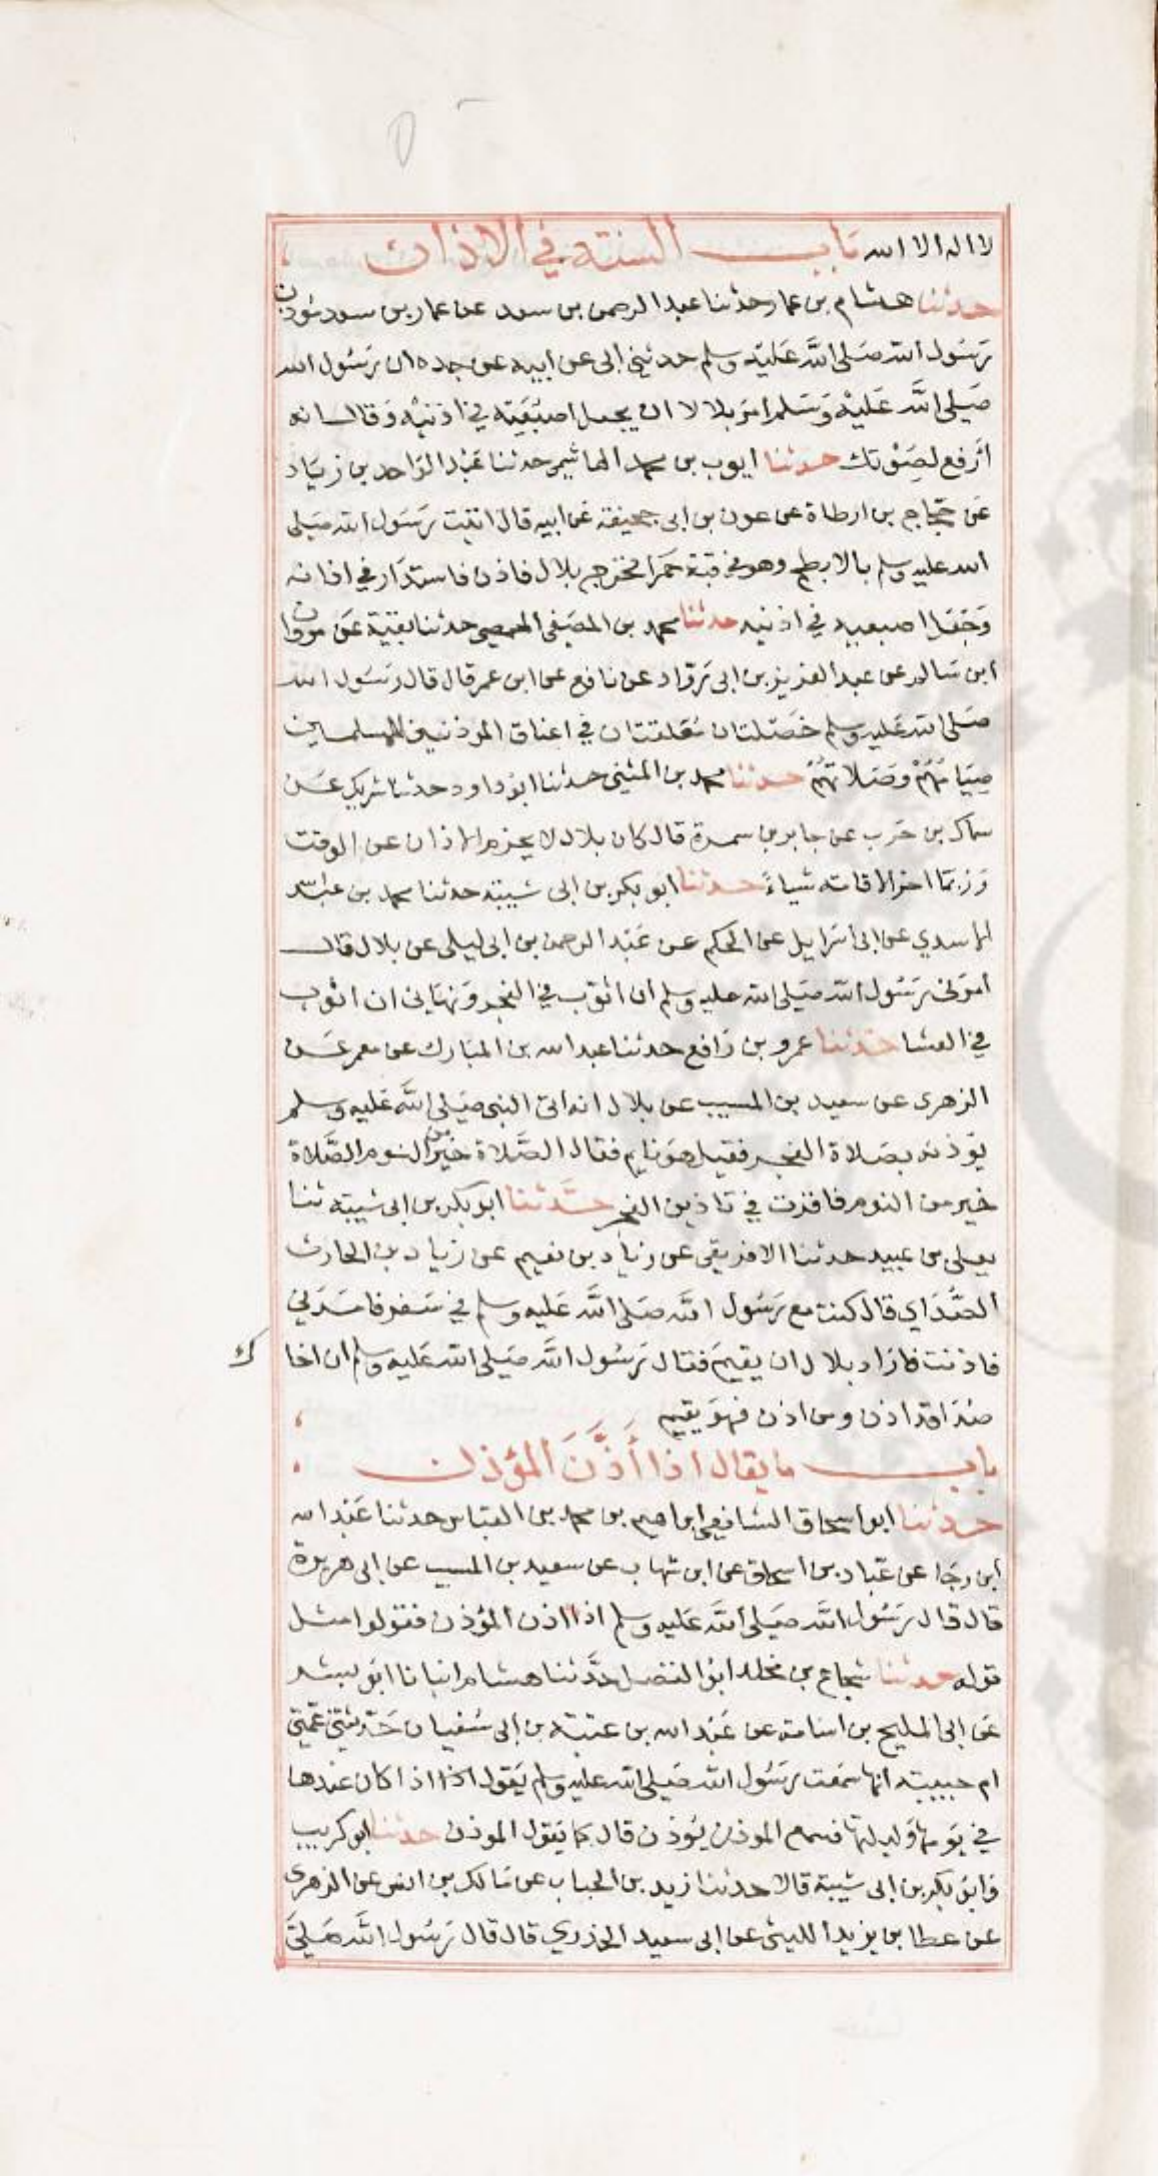 لا اله الا الله باب السنة في الاذان
حدثنا هشام بن عمار حدثنا عبد الرحمن بن سعد عن عمار بن سعد مؤذن
رسول الله صلى الله عليه وسلم حدثني ابى عن ابيه عن جده ان رسول الله
صلى الله عليه وسلم امر بلالا ان يجعل اصبعيه في اذنيه وقال انه
ارفع لصوتك حدثنا ايوب بن محمد الهاشمي حدثنا عبد الواحد بن زياد
عن حجاج بن ارطاة عن عون بن ابى جحيفة عن ابيه قال اتيت رسول الله صلى
الله عليه وسلم بالابطح وهو في قبة حمرا فخرج بلال فاذن فاستدار في اذانه
وجعل اصبعيه في اذنيه حدثنا محمد بن المصفى الحمصي حدثنا بقية عن مروان
ابن سالم عن عبد العزيز بن ابى رواد عن نافع عن ابن عمر قال قال رسول الله
صلى الله عليه وسلم خصلتان معلقتان في اعناق الموذنين للمسلمين
صيامهم وصلاتهم حدثنا محمد بن المثنى حدثنا ابو داود حدثنا شريك عن
سماك بن حرب عن جابر بن سمرة قال كان بلال لا يخرم الاذان عن الوقت
وربما اخر الاقامة شياء حدثنا ابو بكر بن ابى شيبة حدثنا محمد بن عبد الله
الاسدي عن ابى اسرايل عن الحكم عن عبد الرحمن بن ابى ليلى عن بلال قال
امرني رسول الله صلى الله عليه وسلم ان اثوب في الفجر ونهانى ان اثوب
في العشا حدثنا عمرو بن رافع حدثنا عبد الله بن المبارك عن معمر عن
الزهرى عن سعيد بن المسيب عن بلال انه اتى النبى صلى الله عليه وسلم
يوذنه بصلاة الفجر فقيل هو نايم فقال الصلاة خير من النوم الصلاة
خير من النوم فاقرت في تاذين الفجر حدثنا ابو بكر بن ابى شيبة ثنا
يعلى بن عبيد حدثنا الافريقى عن زياد بن نعيم عن زياد بن الحارث
الصداي قال كنت مع رسول الله صلى الله عليه وسلم في سفر فامرني
فاذنت فاراد بلال ان يقيم فقال رسول الله صلى الله عليه وسلم ان اخا
صدا قد اذن ومن اذن فهو يقيم
باب ما يقال اذا أذن المؤذن
حدثنا ابو اسحاق الشافعي ابراهيم بن محمد بن العباس حدثنا عبد الله
ابن رجا عن عباد بن اسحاق عن ابن شهاب عن سعيد بن المسيب عن ابى هريرة
قال قال رسول الله صلى الله عليه وسلم اذا اذن المؤذن فقولوا مثل
قوله حدثنا شجاع بن مخلد ابو الفضل حدثنا هشام انبانا ابو بشر
عن ابى المليح بن اسامة عن عبد الله بن عتبة بن ابى سفيان حدثتني عمتي
ام حبيبة انها سمعت رسول الله صلى الله عليه وسلم يقول اذا كان عندها
في يومها وليلتها فسمع الموذن يوذن قال كما يقول الموذن حدثنا ابو كريب
وابو بكر بن ابى شيبة قالا حدثنا زيد بن الحباب عن مالك بن انس عن الزهرى
عن عطا بن يزيد الليثى عن ابى سعيد الخدري قال قال رسول الله صلى